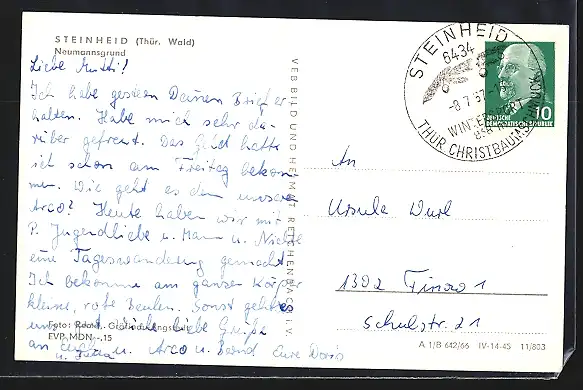 STEINHEID (Thür. Wald)
Neumannsgrund
Liebe Mutti!
Ich habe gestern Deinen Brief er
halten. Habe mich sehr da-
rüber gefreut. Das Geld hatte
ich schon am Freitag bekom
men. Wie geht es denn unserem
Arco? Heute haben wir mit
P. Jugendliebe u. Mann u. Nichte
eine Tageswanderung gemacht.
Ich bekomme am ganzen Körper
kleine, rote Beulen. Sonst geht es
uns gut. Viele liebe Grüße
an euch u. Arco u. Bernd Eure Doris
u.
Foto: Gräfinau-Angstedt
EVP MDN -,15
VEB BILD UND HEIMAT REICHENBACH I. V.
STEINHEID
6434
-8.7.67-
WINTERSPORT
THÜR CHRISTBAUMSCHMUCK
10
DEUTSCHE
DEMOKRATISCHE REPUBLIK
An
Ursula
1302 Finow 1
Schulstr. 21
A 1/B 642/66 IV-14-45 11/803